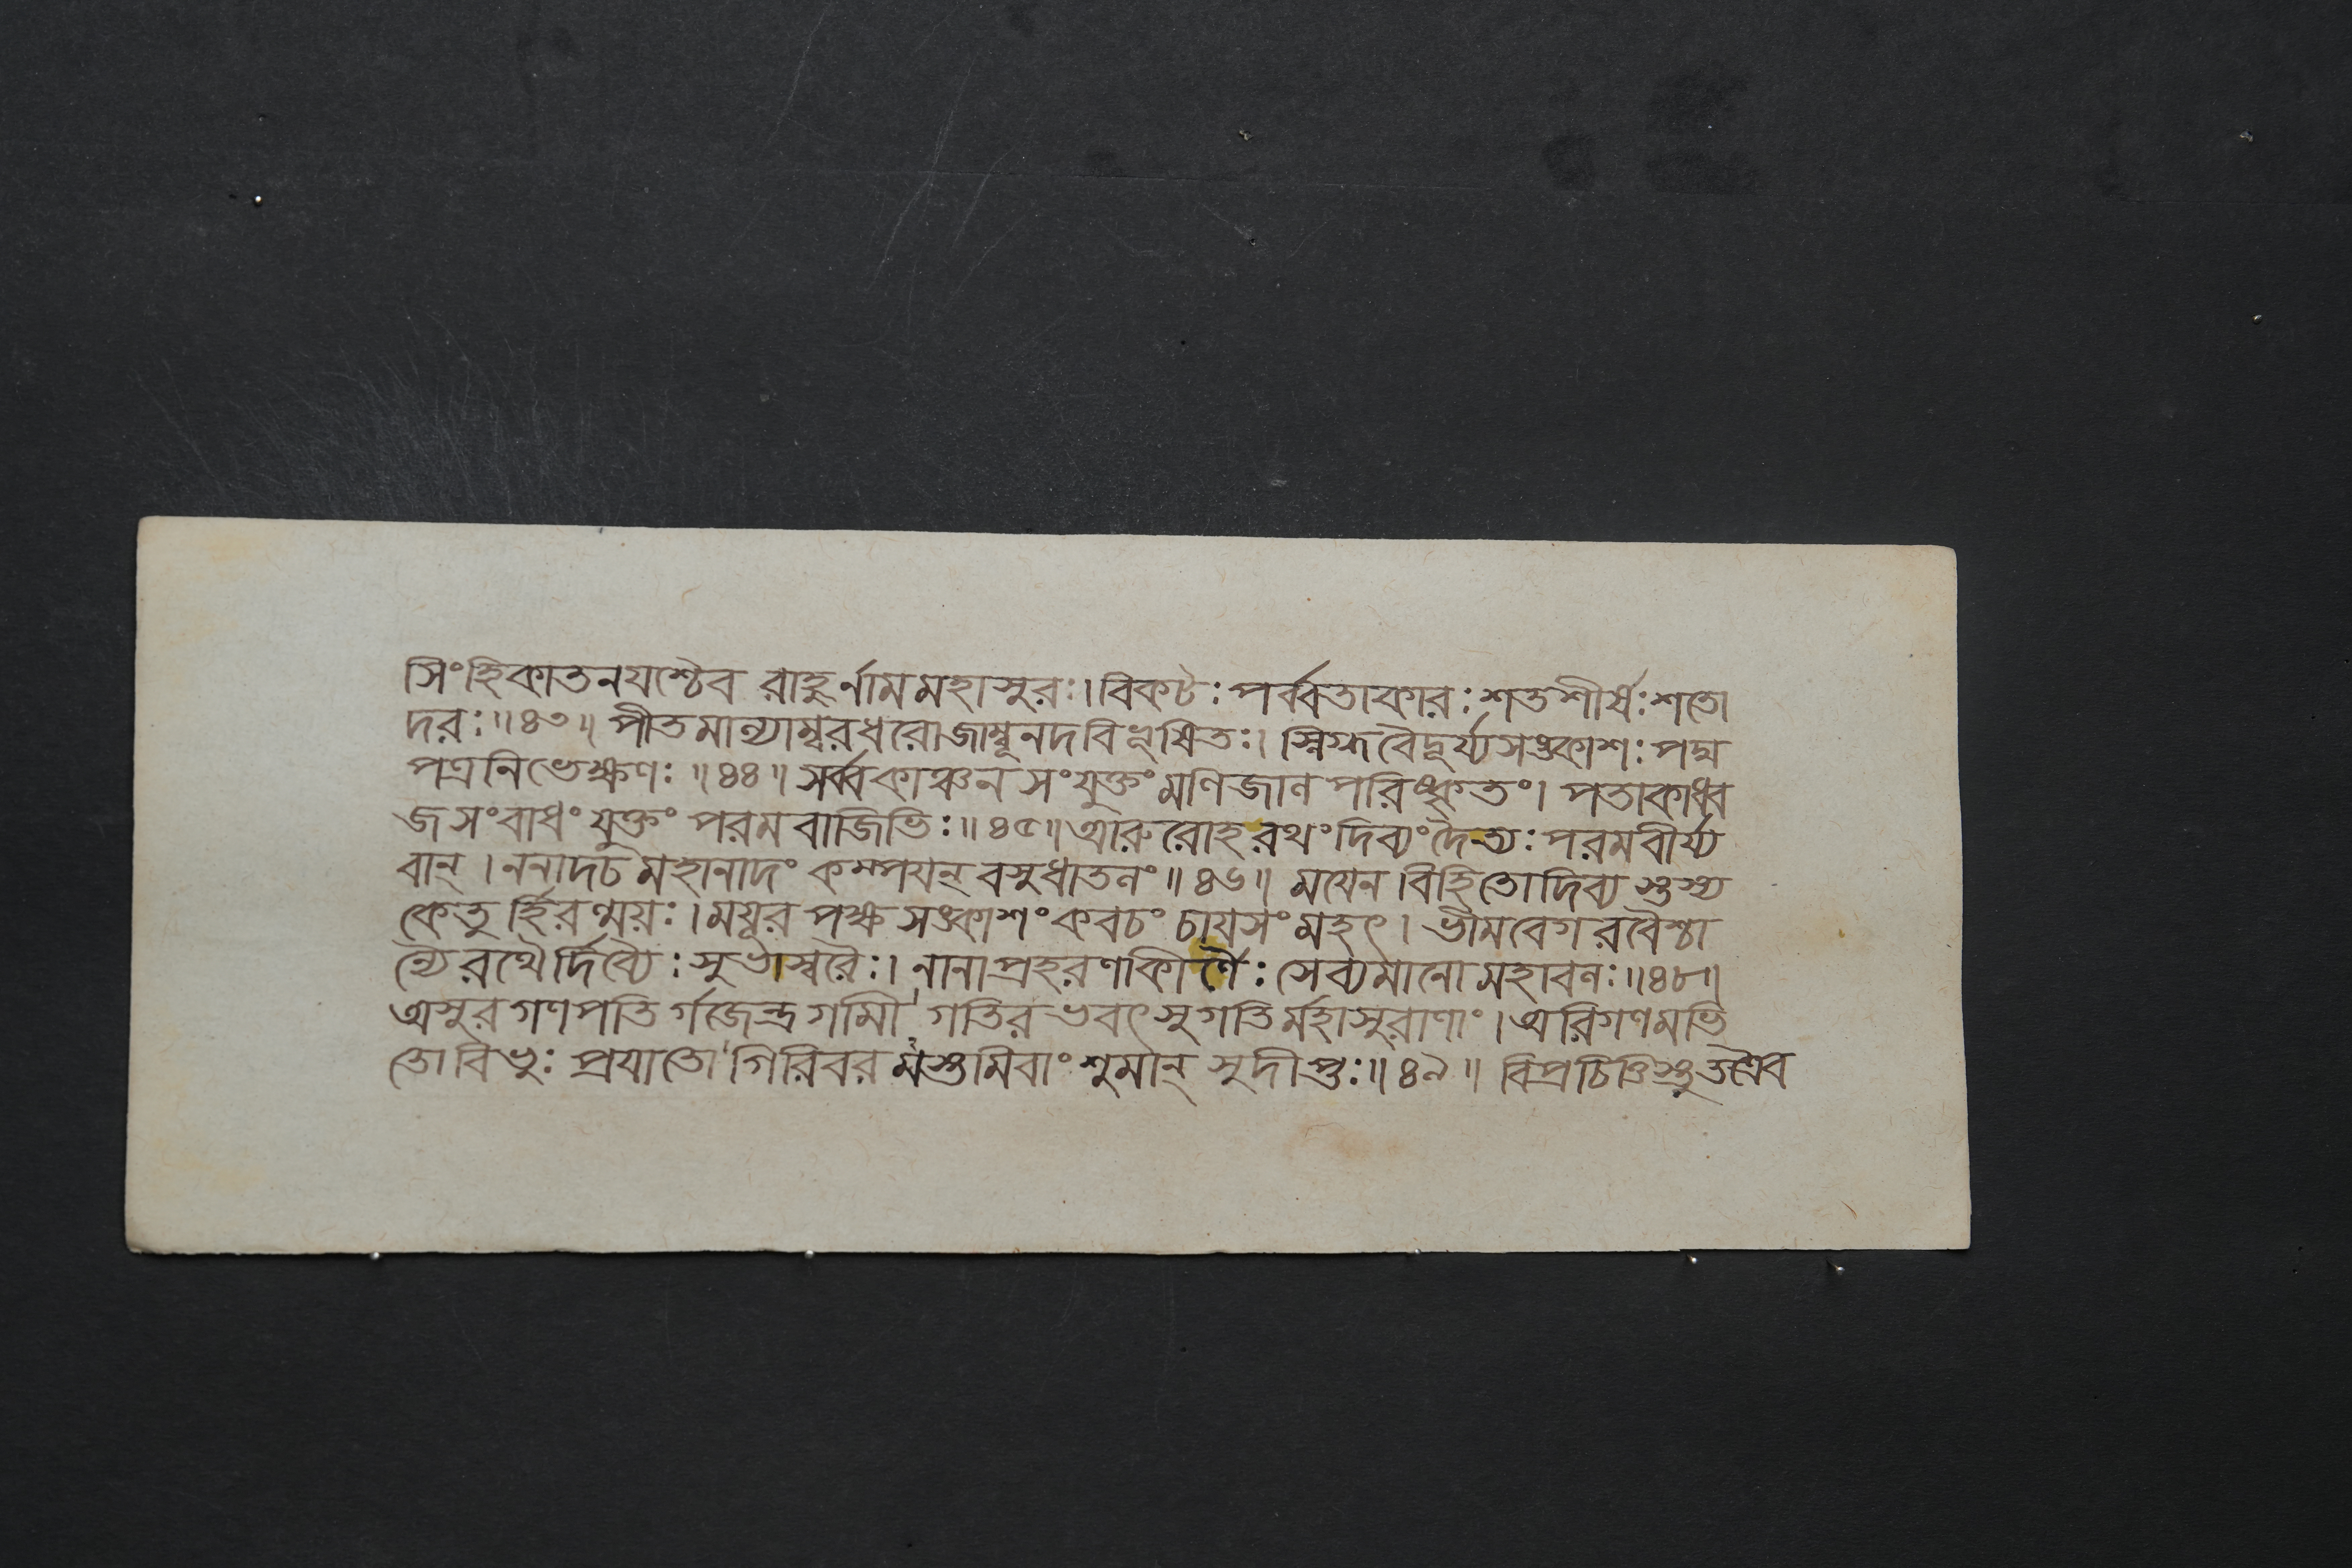 সিংহিকাতনযশ্চৈব রাহুর্নামমহাসুরঃ। বিকটঃ পর্ব্বতাকারঃ শতশীর্ষঃ শতো
দরঃ॥৪৩॥ পীতমাল্যাম্বরধরোজাম্বূনদবিভূষিতঃ। স্নিগ্ধবৈদূর্য্যসঙ্কাশঃ পদ্ম
পত্রনিভেক্ষণঃ॥৪৪॥ সর্ব্বকাঞ্চনসংযুক্তং মণিজালপরিষ্কৃতং। পতাকাধ্ব
জসংবাধং যুক্তং পরমবাজিভিঃ॥৪৫॥ আরুরোহরথং দিব্যং দৈত্যঃ পরমবীর্য্য
বান্। ননাদচ মহানাদং কম্পযন্ বসুধাতলং॥৪৬॥ মযেন বিহিতোদিব্য স্তস্য
কেতু র্হিরণ্ময়ঃ। ময়ূরপক্ষসঙ্কাশং কবচং চাযসং মহৎ। ভীমবেগরবৈশ্চা
ন্যৈরথৈর্দিব্যৈঃ সুভাস্বরৈঃ। নানাপ্রহরণাকীর্ণৈঃ সেব্যমানো মহাবলঃ॥৪৮॥
অসুরগণপতি র্গজেন্দ্রগামী গতিরভবৎ সুগতির্মহাসুরাণাং। অরিগণমভি
তো বিভুঃ প্রযাতো গিরিবরমস্তমিবাংশুমান্ সুদীপ্তঃ॥৪৯॥ বিপ্রচিত্তিস্তুতশ্চৈব